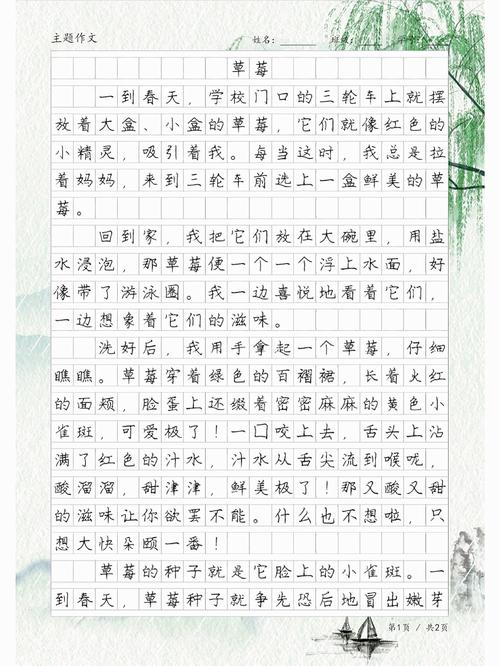 主题作文
姓名：
草莓
一到春天，学校门口的三轮车上就摆
放着大盒、小盒的草莓，它们就像红色的
小精灵，吸引着我。每当这时，我总是拉
着妈妈，来到三轮车前选上一盒鲜美的草
莓。
回到家，我把它们放在大碗里，用盐
水浸泡，那草莓便一个一个浮上水面，好
像带了游泳圈。我一边喜悦地看着它们，
一边想象着它们的滋味。
洗好后，我用手拿起一个草莓，仔细
瞧瞧。草莓穿着绿色的百褶裙，长着火红
的面颊，脸蛋上还缀着密密麻麻的黄色小
雀斑，可爱极了！一口咬上去，舌头上沾
满了红色的汁水，汁水从舌尖流到喉咙，
酸溜溜，甜津津，鲜美极了！那又酸又甜
的滋味让你欲罢不能。什么也不想啦，只
想大快朵颐一番！
草莓的种子就是它脸上的小雀斑。一
到春天，草莓种子就争先恐后地冒出嫩芽
第1页 / 共2页